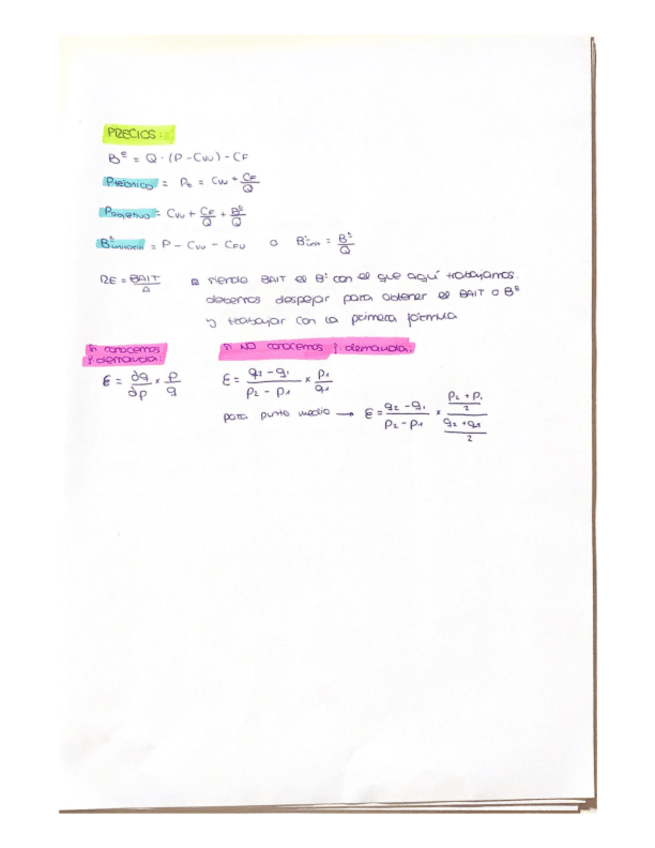 PRECIOS:
Bº = Q · (P - Cvu) - CF
Ptécnico = Pt = Cvu + CF/Q
Pobjetivo = Cvu + CF/Q + Bº/Q
Bºunitario = P - Cvu - CFu o Bºunit = Bº/Q
RE = BAIT/A siendo BAIT el Bº con el que aquí trabajamos.
debemos despejar para obtener el BAIT o Bº
y trabajar con la primera fórmula
si conocemos
f. demanda:
si NO conocemos f. demanda:
Ɛ = ∂q/∂p × p/q
Ɛ = (q2 - q1)/(p2 - p1) × p1/q1
para punto medio → Ɛ = (q2 - q1)/(p2 - p1) × ((p2 + p1)/2)/((q2 + q1)/2)